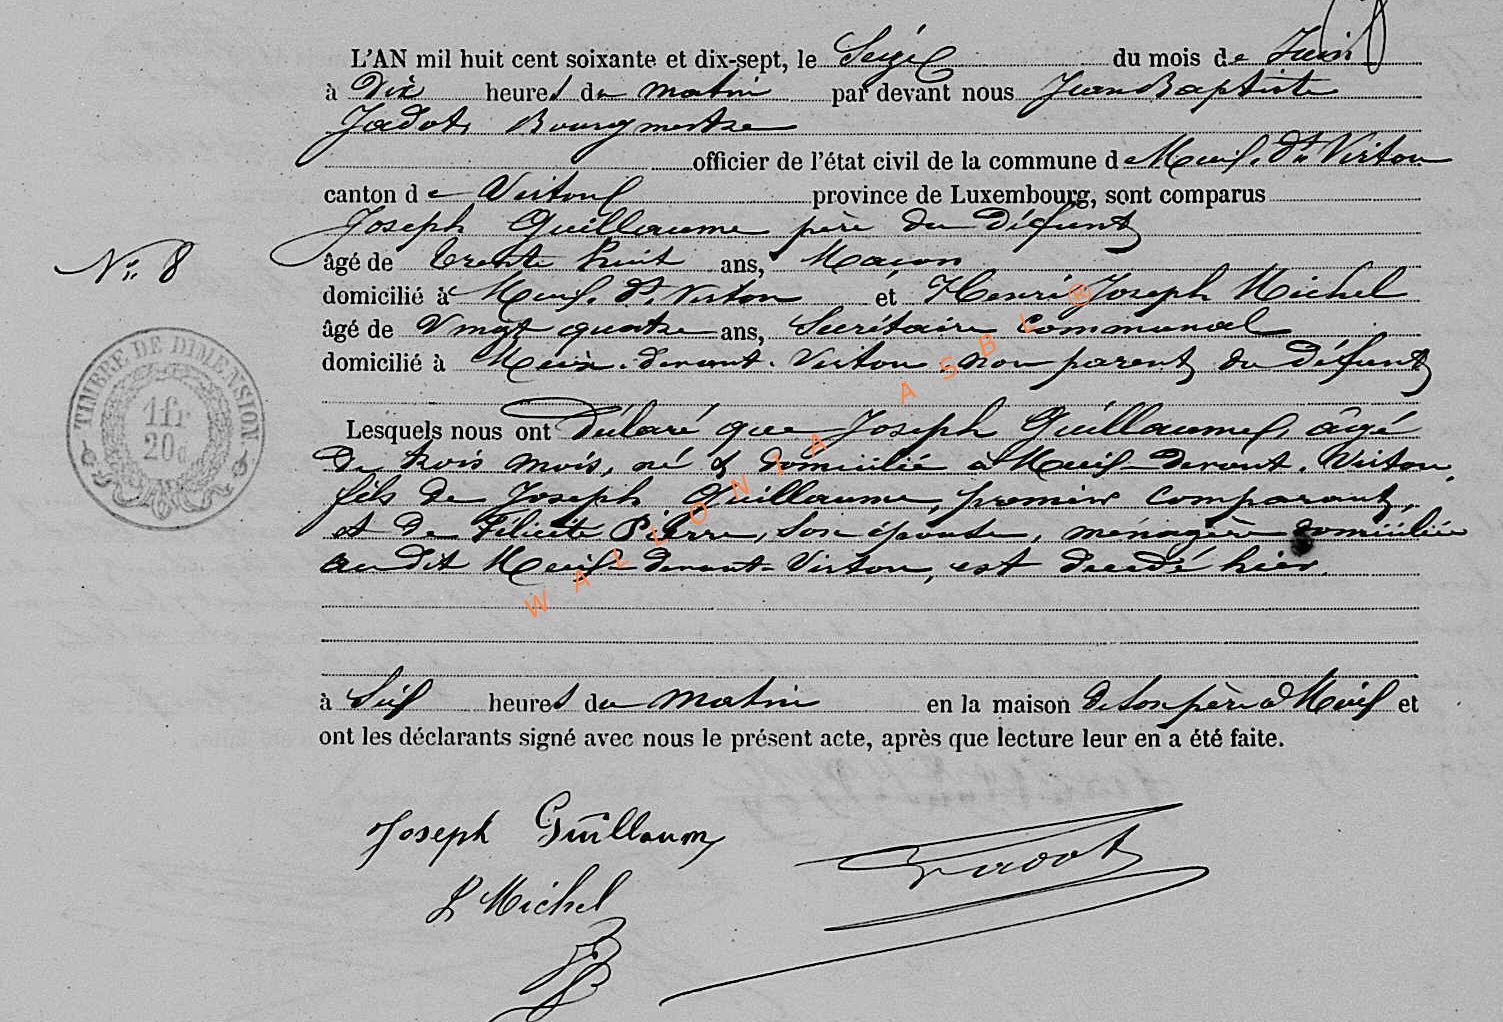 L'AN mil huit cent soixante et dix-sept, le Seize du mois de Juin
à Dix heures du matin par devant nous Jean Baptiste
Jadot, Bourgmestre
officier de l'état civil de la commune de Meix, dt Virton
canton de Virton province de Luxembourg, sont comparus
Joseph Guillaume père du Défunt
âgé de trente huit ans, Maçon
N° 8
domicilié à Meix, dt, Virton et Henri Joseph Michel
âgé de Vingt quatre ans, Secrétaire Communal
domicilié à Meix-devant-Virton, non parent du Défunt
TIMBRE DE DIMENSION
1 fr
20 c
Lesquels nous ont Déclaré que Joseph Guillaume, âgé
De trois mois, né & domicilié à Meix-devant-Virton,
fils de Joseph Guillaume, premier comparant,
et de Félicité Pierre, son épouse, ménagère domiciliée
au dit Meix-devant-Virton, est decedé hier,
à Six heures du Matin en la maison de son père à Meix et
ont les déclarants signé avec nous le présent acte, après que lecture leur en a été faite.
Joseph Guillaume
Jadot
Michel
WALLONIA ASBL ®